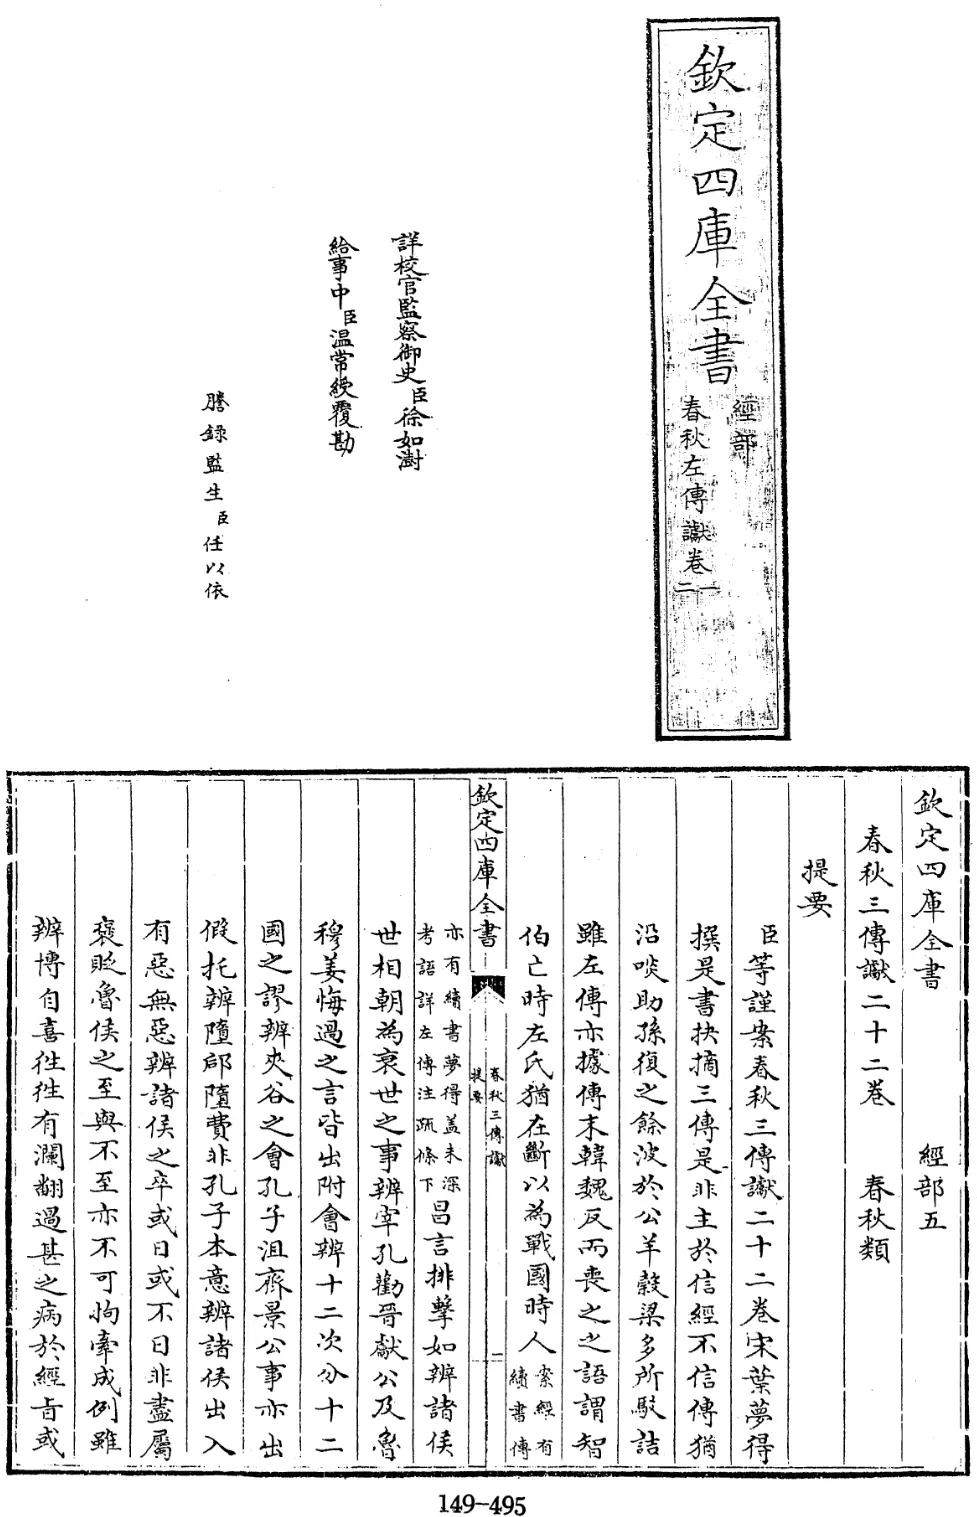 欽定四庫全書
經部
春秋左傳讞卷一
二
詳校官監察御史臣徐如澍
給事中臣溫常綬覆勘
謄錄監生臣任以依
欽定四庫全書　　經部五
春秋三傳讞二十二卷　　春秋類
提要
臣等謹案春秋三傳讞二十二卷宋葉夢得
撰是書抉摘三傳是非主於信經不信傳猶
沿啖助孫復之餘波於公羊穀梁多所駁詰
雖左傳亦據傳末韓魏反而喪之之語謂智
伯亡時左氏猶在斷以為戰國時人案經有
續書傳
欽定四庫全書
春秋三傳讞
提要
一
亦有續書夢得蓋未深
考語詳左傳注疏條下
昌言排擊如辨諸侯
世相朝為衰世之事辨宰孔勸晉獻公及魯
穆姜悔過之言皆出附會辨十二次分十二
國之謬辨夾谷之會孔子沮齊景公事亦出
假托辨墮郈墮費非孔子本意辨諸侯出入
有惡無惡辨諸侯之卒或日或不日非盡屬
襃貶魯侯之至與不至亦不可拘牽成例雖
辨博自喜徃徃有瀾翻過甚之病於經旨或
149-495